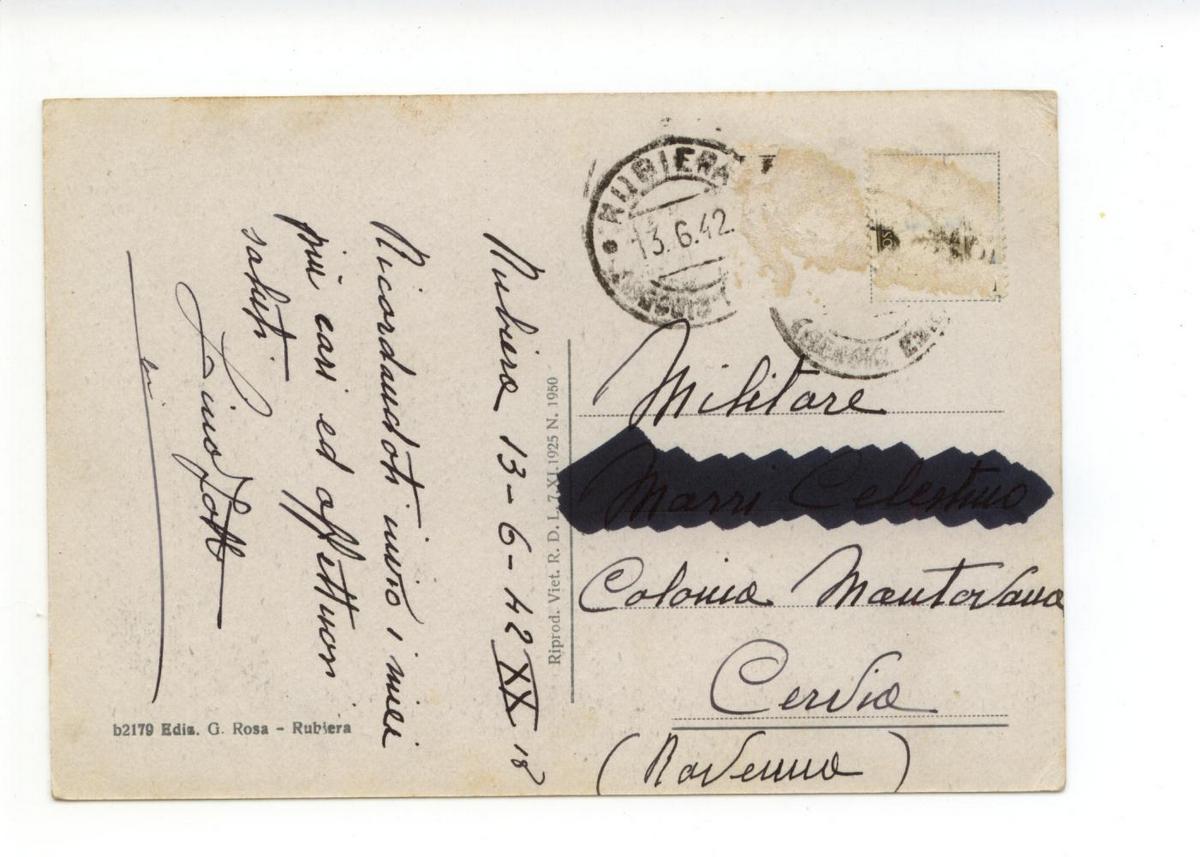 RUBIERA
13.6.42
Rubiera 13-6-42 XX 18
Ricordandoti invio i miei
più cari ed affettuosi
saluti
Riprod. Viet. R. D. L. 7.XI.1925 N. 1950
b2179 Ediz. G. Rosa - Rubiera
Militare
Colonia Mantovana
Cervia
(Ravenna)